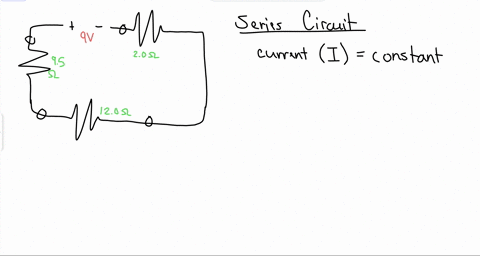 Series Circuit
current (I) = constant
+ -
9V
2.0Ω
95
Ω
12.0Ω